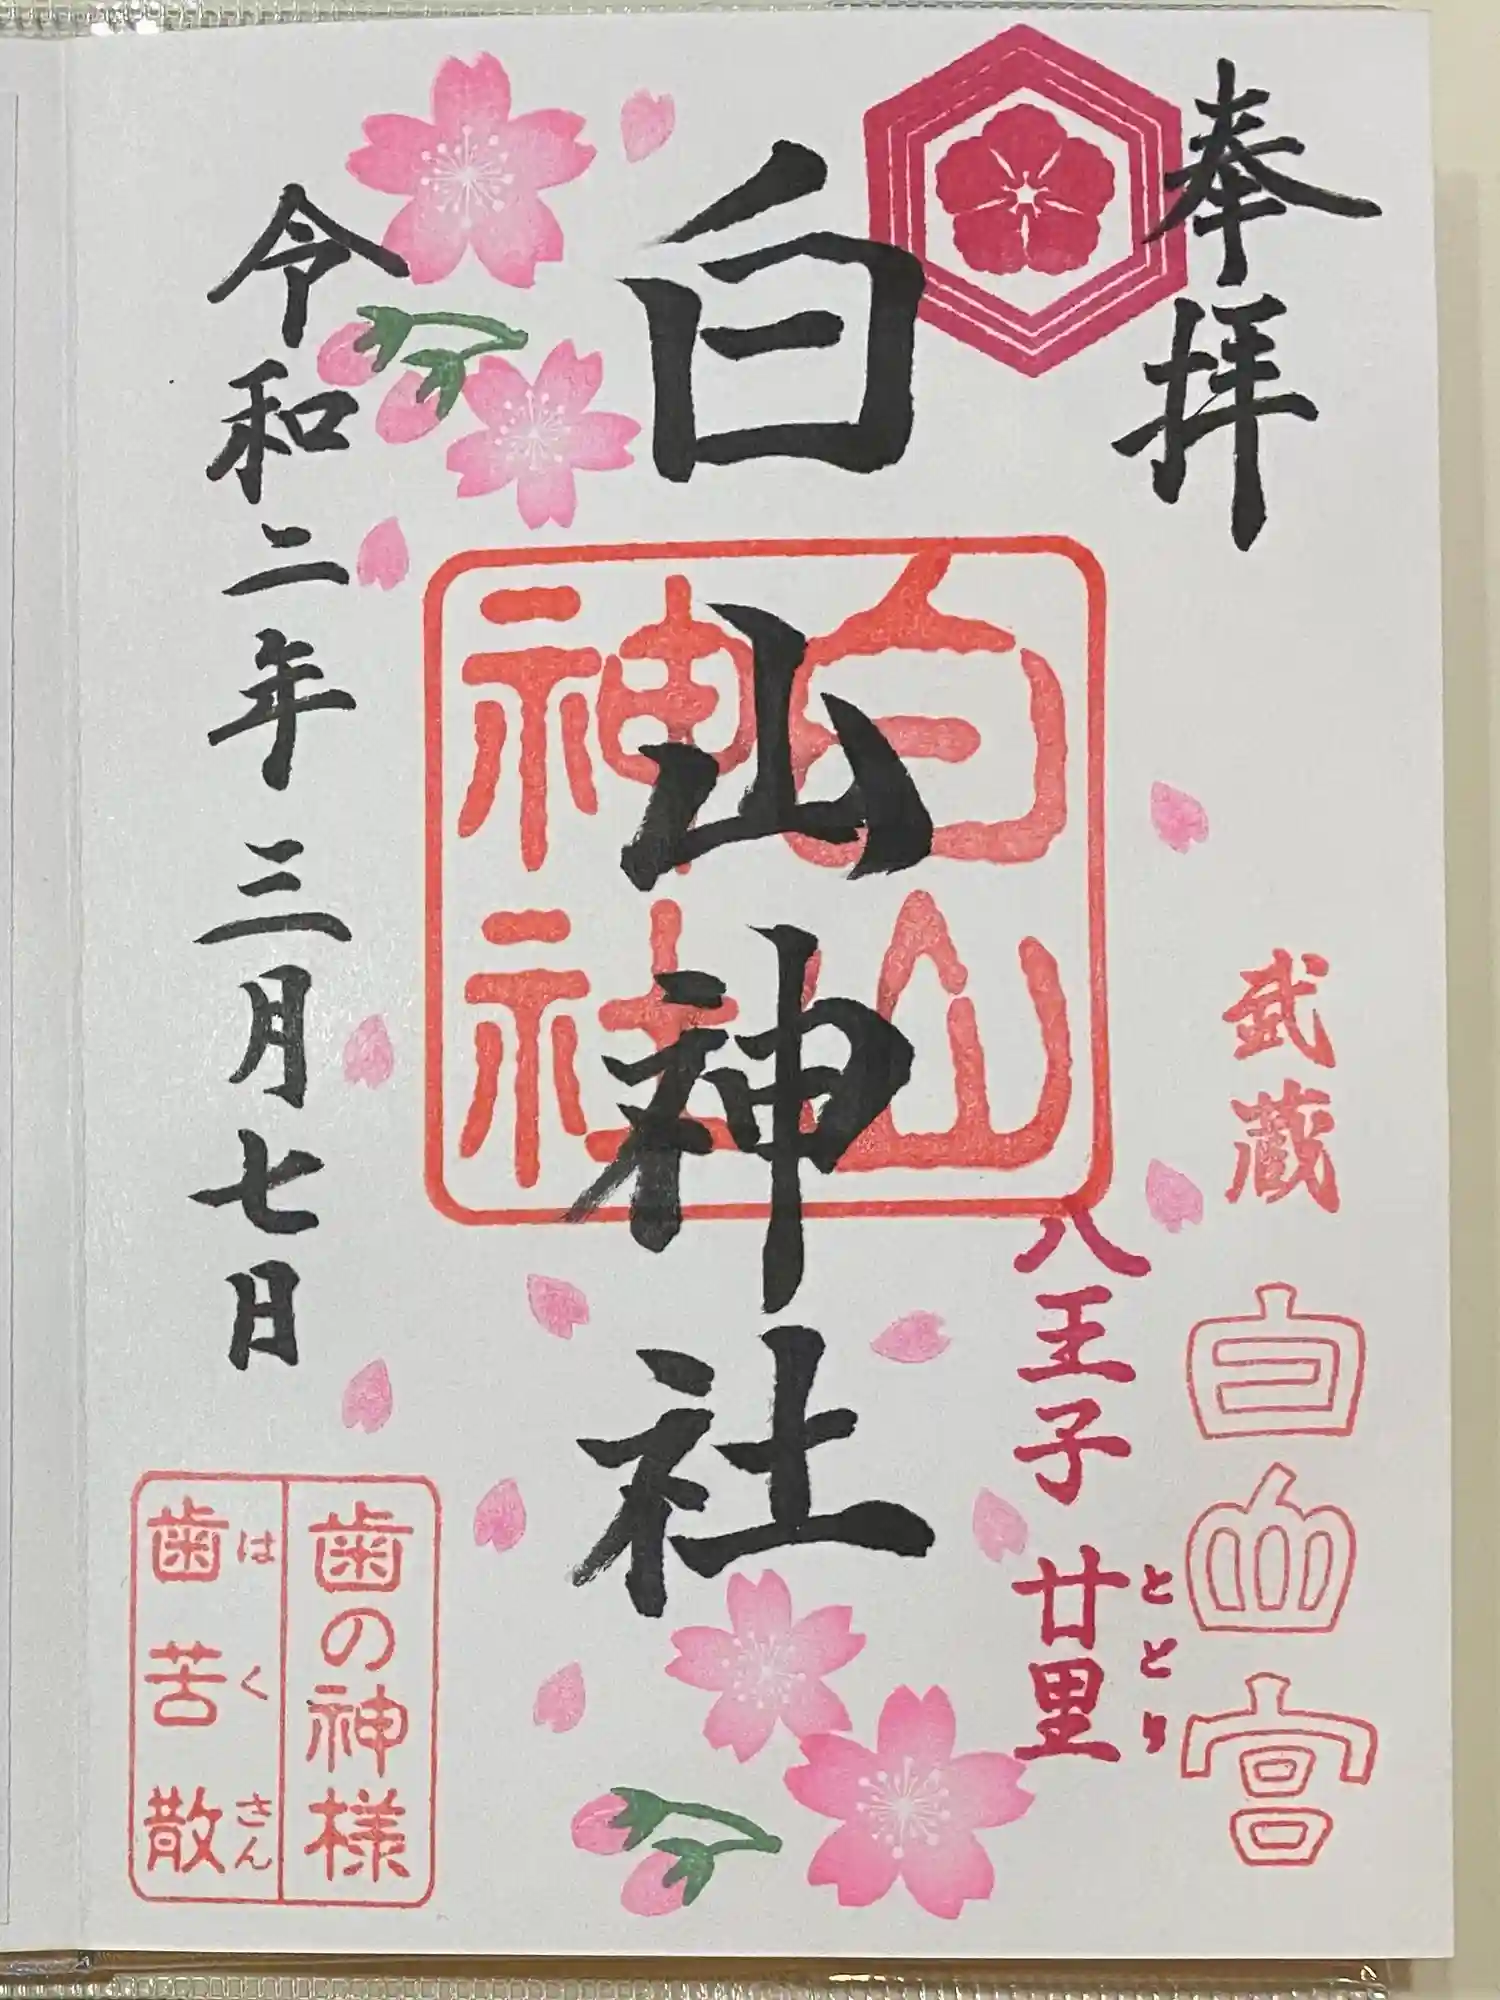 奉拝
武蔵
白山宮
八王子 廿里
ととり
白山神社
白山
神社
令和二年三月七日
歯の神様
はくさん
歯苦散